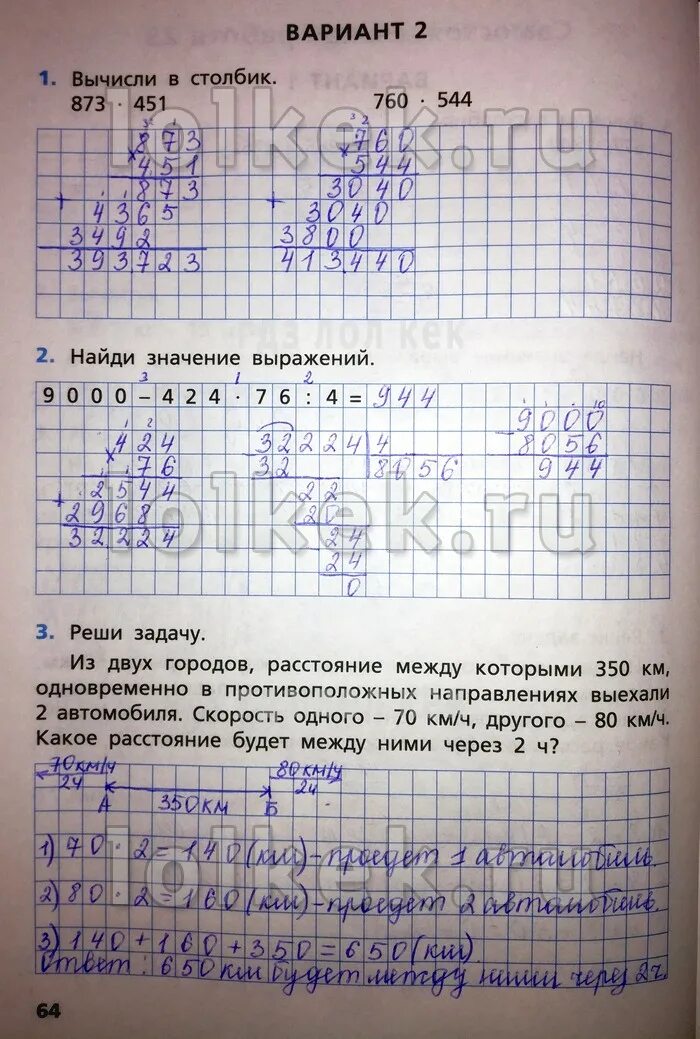 ВАРИАНТ 2
1. Вычисли в столбик.
873 · 451 760 · 544
873
× 451
873
+ 4365
3492
393723
760
× 544
3040
+ 3040
3800
413440
2. Найди значение выражений.
3 1 2
9000 – 424 · 76 : 4 = 944
424
× 76
2544
+ 2968
32224
32224 4
32 8056
22
20
24
24
0
9000
- 8056
944
3. Реши задачу.
Из двух городов, расстояние между которыми 350 км,
одновременно в противоположных направлениях выехали
2 автомобиля. Скорость одного – 70 км/ч, другого – 80 км/ч.
Какое расстояние будет между ними через 2 ч?
70км/ч 80км/ч
2ч 2ч
А 350км Б
1) 70 · 2 = 140 (км) - проедет 1 автомобиль.
2) 80 · 2 = 160 (км) - проедет 2 автомобиль.
3) 140 + 160 + 350 = 650 (км).
Ответ: 650 км будет между ними через 2 ч.
64
lolkek.ru
гдз лол кек
lolkek.ru
lolkek.ru